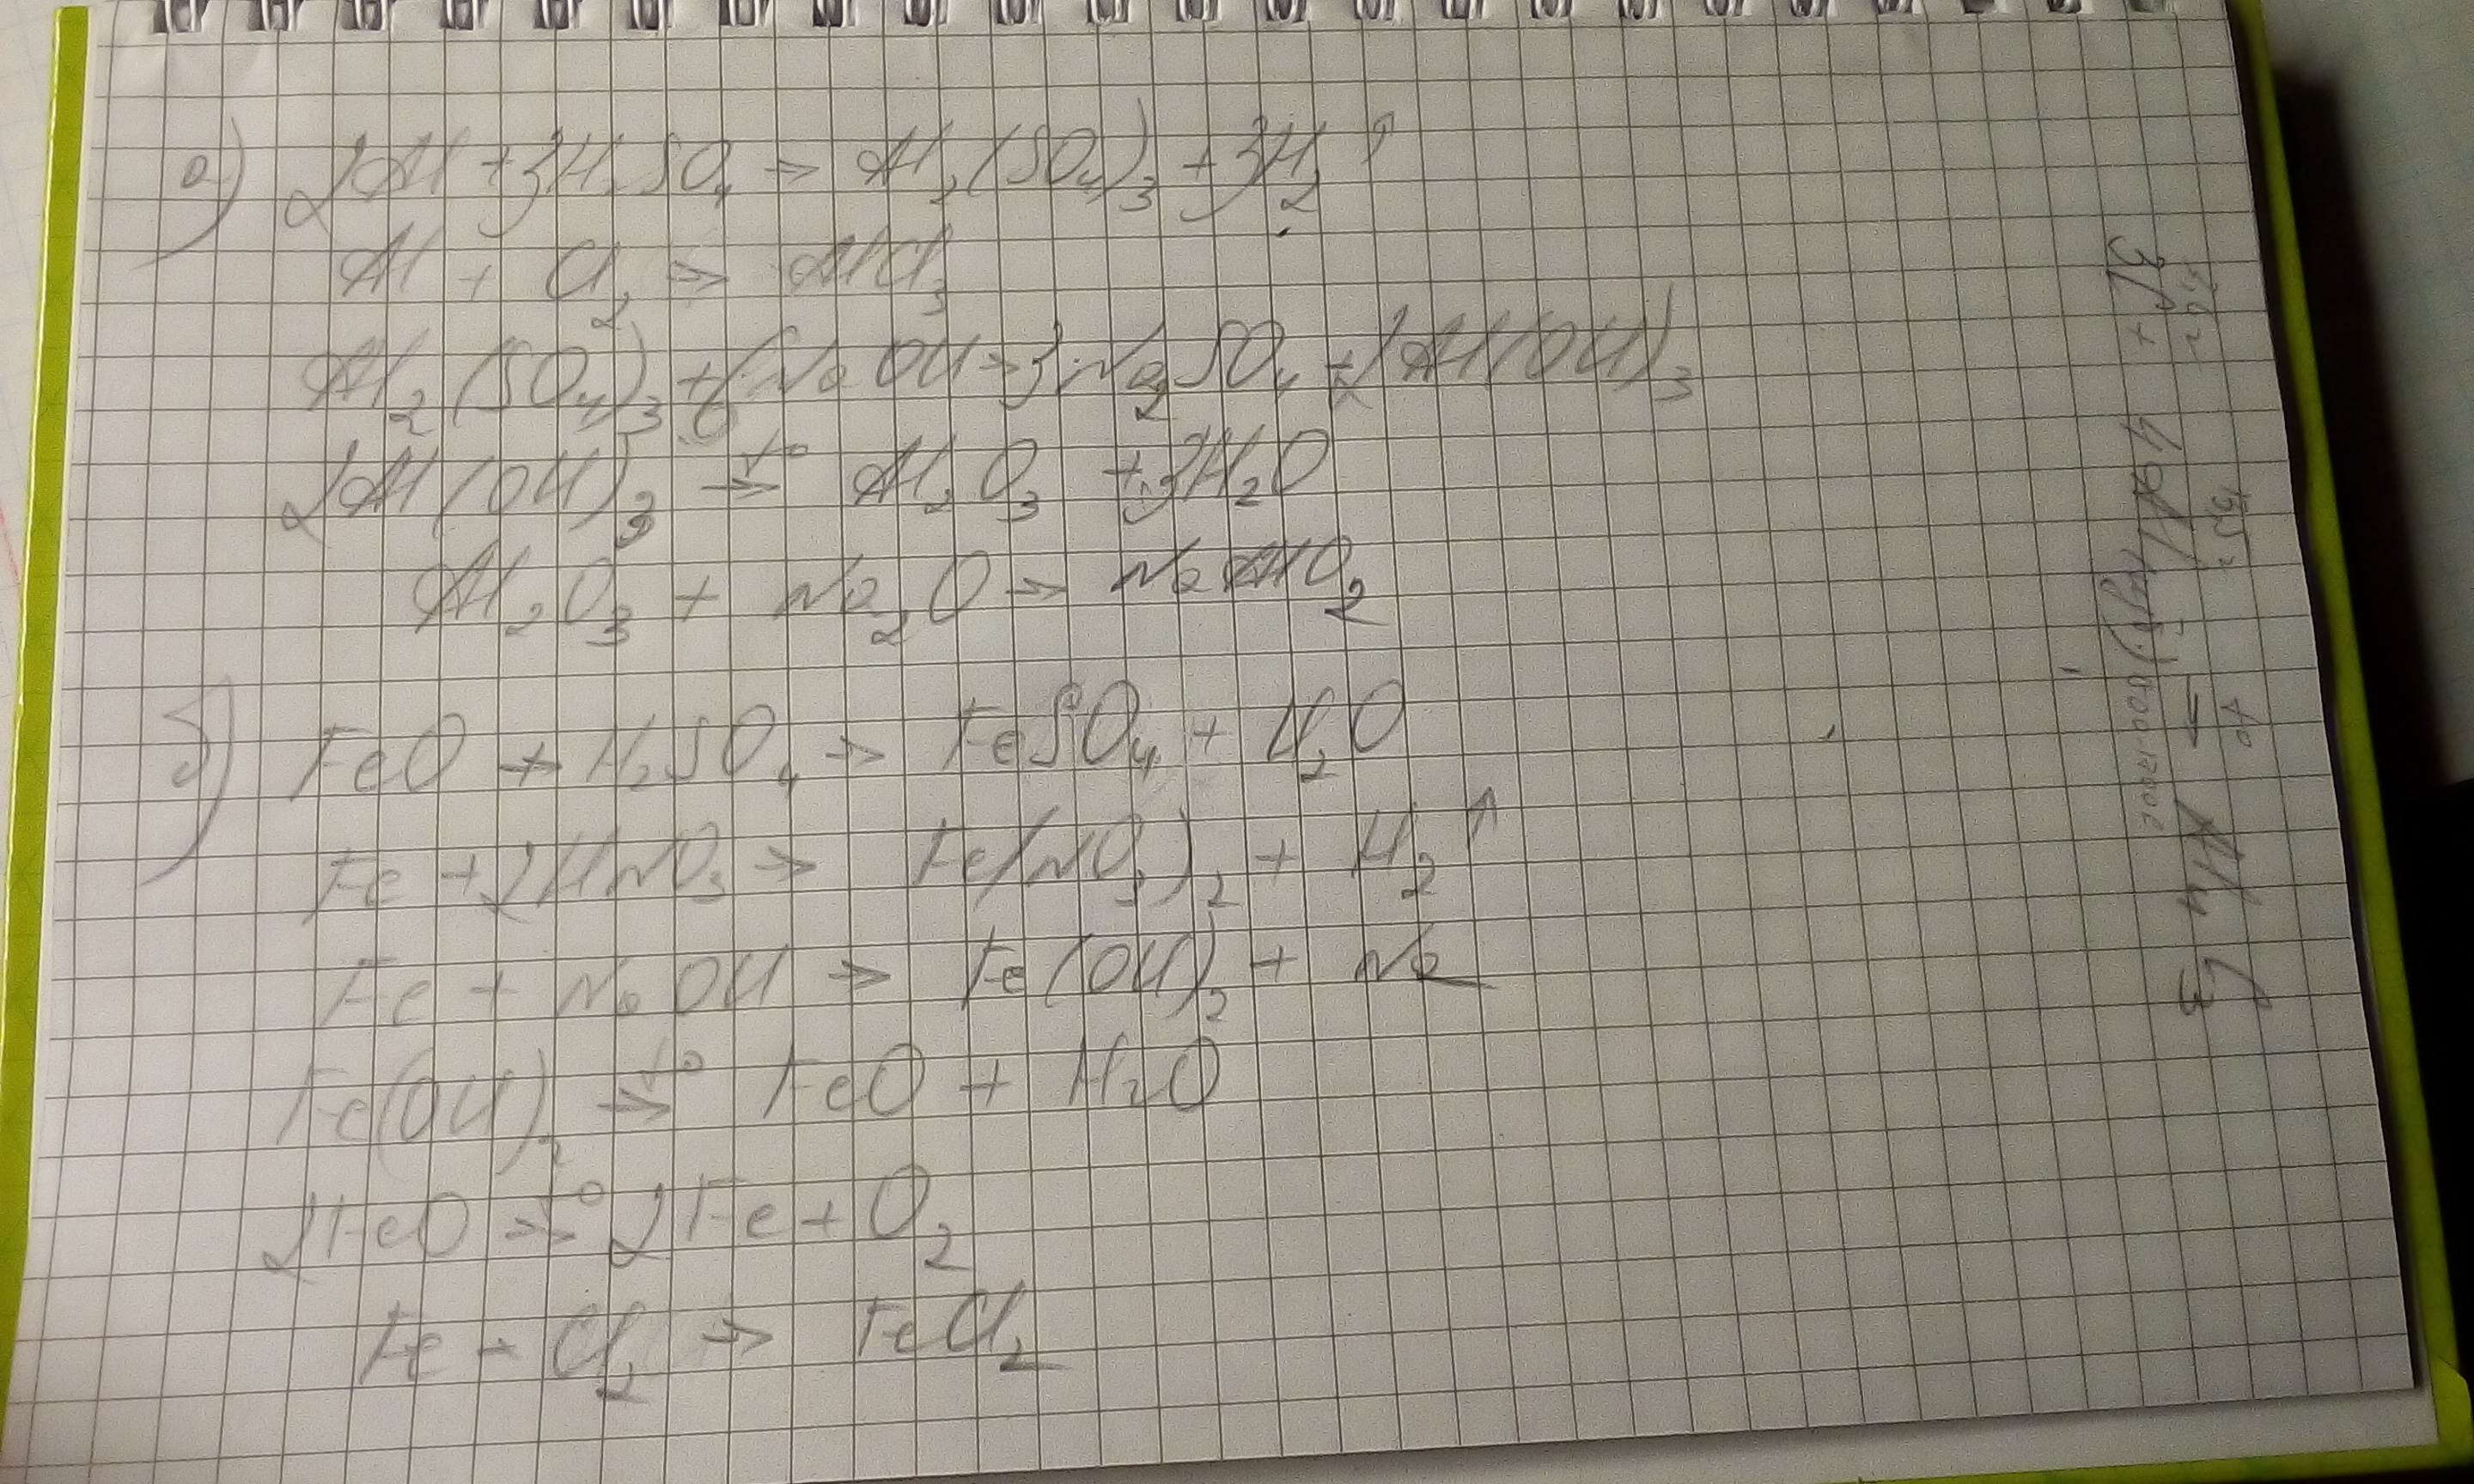 а) 2Al + 3H2SO4 → Al2(SO4)3 + 3H2↑
Al + Cl2 → AlCl3
Al2(SO4)3 + 6NaOH → 3Na2SO4 + 2Al(OH)3
2Al(OH)3 t° → Al2O3 + 3H2O
Al2O3 + Na2O → NaAlO2
б) FeO + H2SO4 → FeSO4 + H2O
Fe + 2HNO3 → Fe(NO3)2 + H2↑
Fe + NaOH → Fe(OH)2 + Na
Fe(OH)2 t° → FeO + H2O
2FeO t° → 2Fe + O2
Fe + Cl2 → FeCl2
3 + 4Al t° → Al4C3